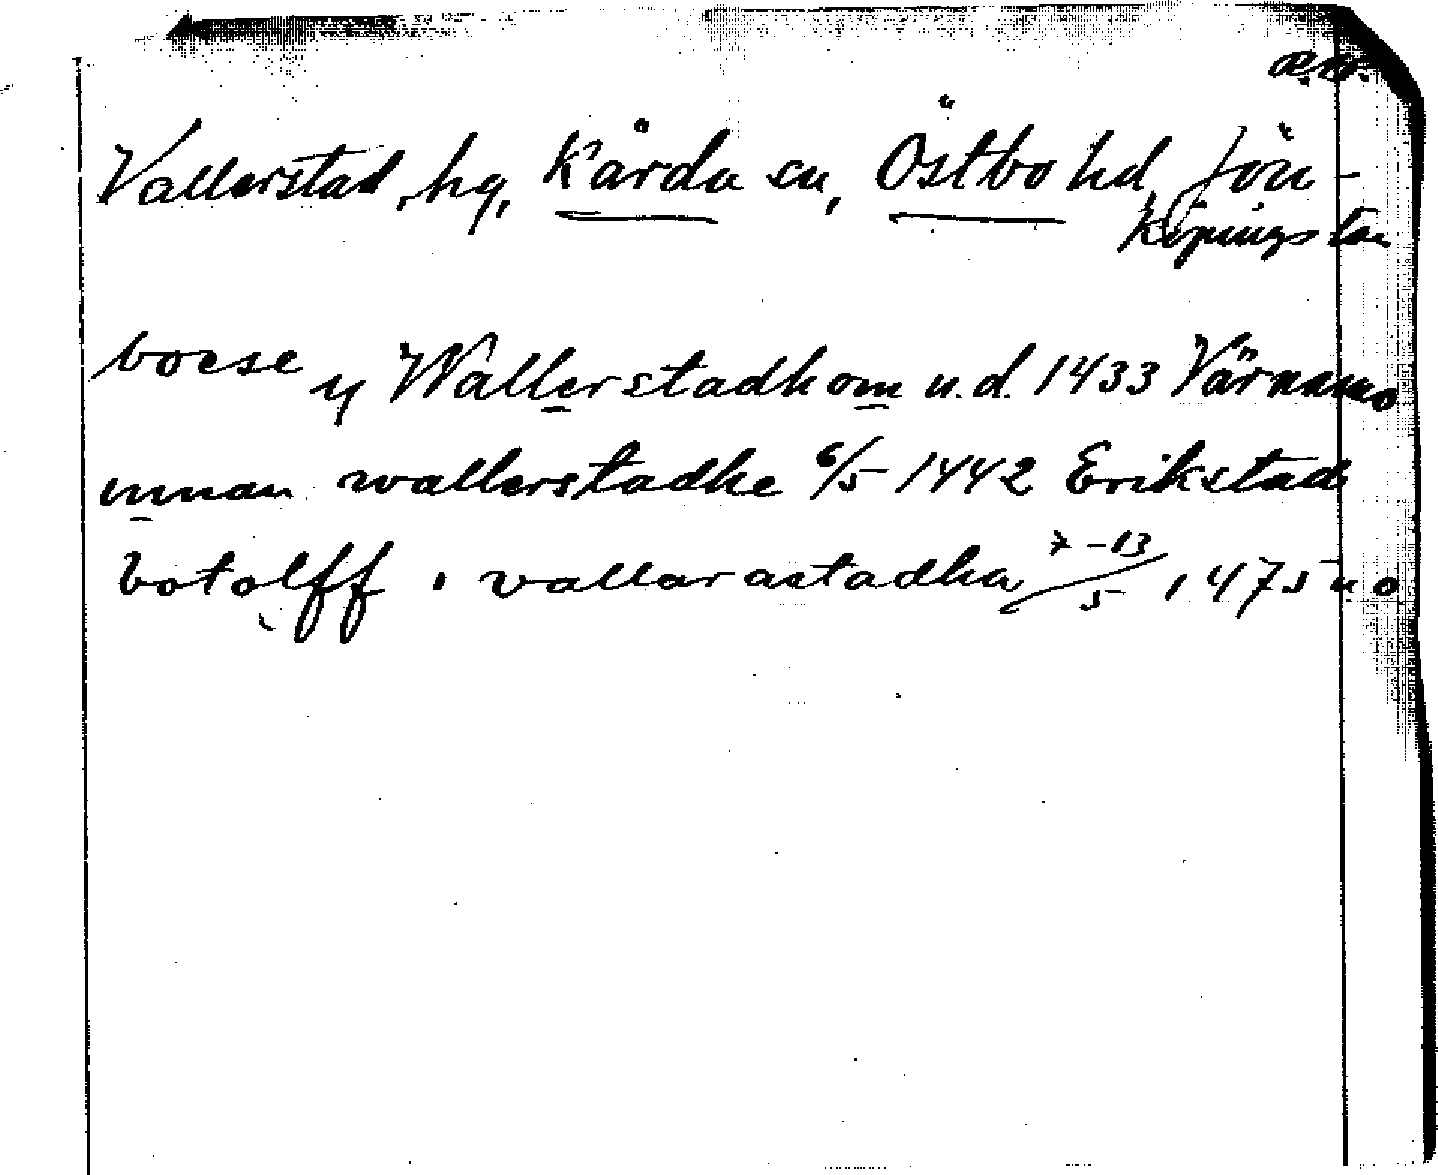 Vallerstad, hg, Kårda sn, Östbo hd, Jön-
köpings län
boese y Wallerstadhom u.d. 1433 Värnamo
innan wallerstadhe 6/5 1442 Erikstad
botolff i vallarastadha 7-13/5 1475 u o